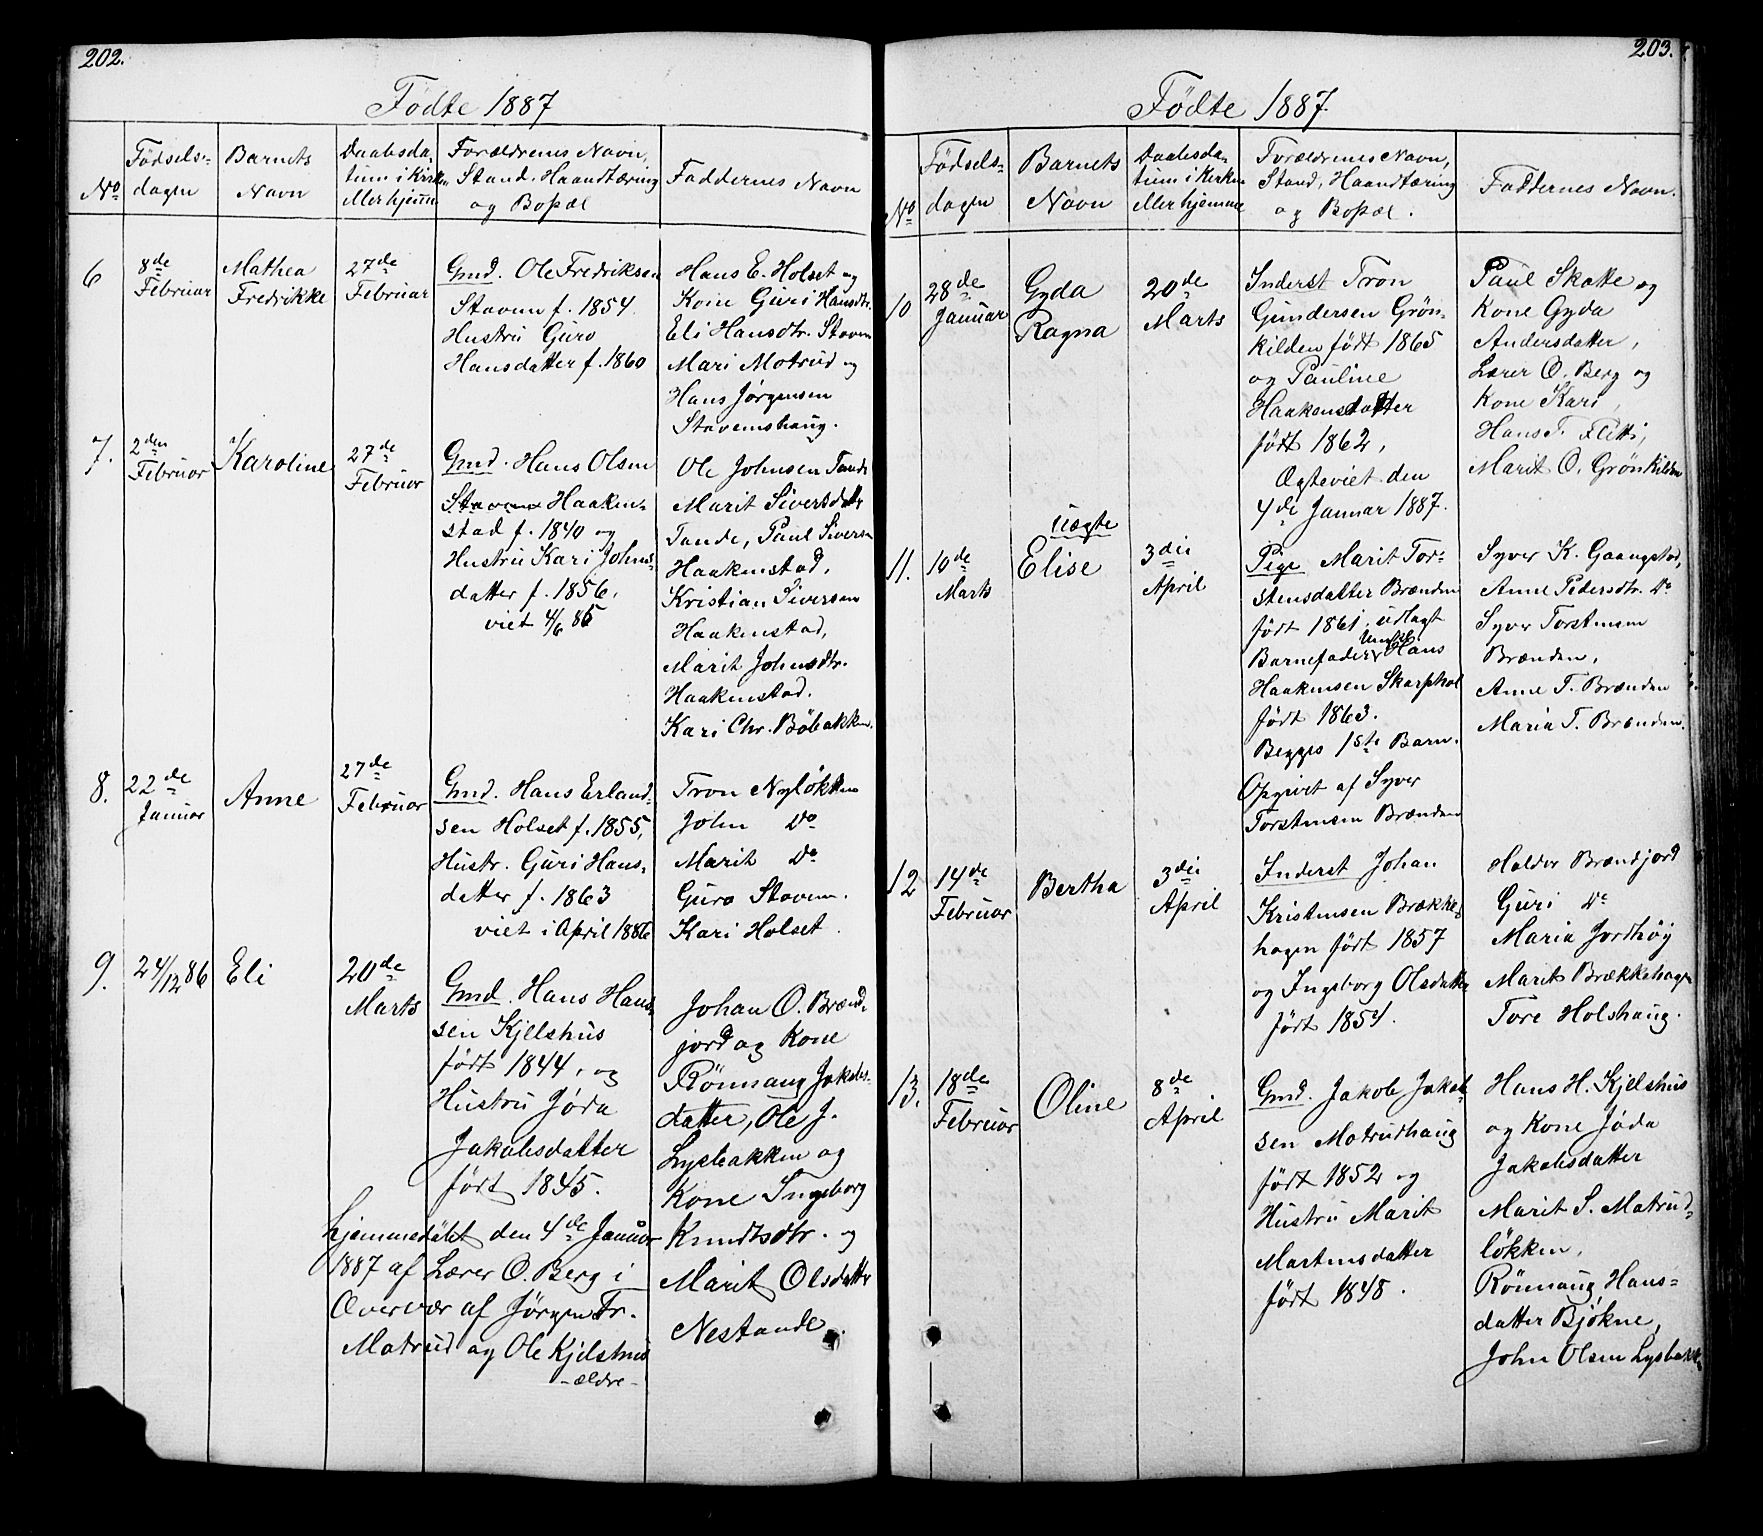 202.
Fødte 1887
No
Fødsels-
dagen
Barnets
Navn
Daabsda-
tum i Kirken
ller hjemme
Forældrenes Navn,
Stand, Haandtæring
og Bopæl
Faddernes Navn
6
8de
Februar
Mathea
Fredrikke
27de
Februar
Gmd. Ole Fredriksen
Stavem f. 1854
Hustru Guro
Hansdatter f. 1860
Hans E. Holset og
Kone Guri Hansdtr.
Eli Hansdtr. Stavem
Mari Motrud og
Hans Jørgensen
Stavemshaug.
7.
2den
Februar
Karoline
27de
Februar
Gmd. Hans Olsen
Stavem Haaken-
stad f. 1840 og
Hustru Kari Johns-
datter f. 1856.
viet 4/6 85
Ole Johnsen Tande
Marit Siversdatter
Tande, Paul Siversen
Haakenstad,
Kristian Siversen
Haakenstad,
Marit Johnsdtr.
Haakenstad.
Kari Chr. Böbakken.
8.
22de
Januar
Anne
27de
Februar
Gmd. Hans Erland-
sen Holset f. 1855,
Hustr. Guri Hans-
datter f. 1863
viet i April 1886
Tron Nyløkken
John Do
Marit Do
Guro Stavem.
Kari Holset.
9.
24/12 86
Eli
20de
Marts
Gmd. Hans Han-
sen Kjelshus
født 1844, og
Hustru Jøda
Jakobsdatter
født 1845.
Hjemmedøbt den 4de Januar
1887 af Lærer O. Berg i
Overvær af Jörgen Fr.
Motrud og Ole Kjelshus
- ældre -
Johan O. Brænd-
jord og Kone
Rönnaug Jakobs-
datter, Ole J.
Lysbakken og
Kone Ingeborg
Knudtsdtr. og
Marit Olsdatter
Nestande.
203.
Fødte 1887.
No
Fødsels-
dagen
Barnets
Navn
Daabsda-
tum i Kirken
eller hjemme
Forældrenes Navn,
Stand, Haandtæring
og Bopæl.
Faddernes Navn.
10
28de
Januar
Gyda
Ragna
20de
Marts
Inderst Tron
Gundersen Grön-
kilden født 1865
og Pauline
Haakensdatter
født 1862,
Ægteviet den
4de Januar 1887.
Paul Skotte og
Kone Gyda
Andersdatter,
Lærer O. Berg og
Kone Kari,
Hans T. Flitti,
Marit O. Grönkilden
11.
10de
Marts
uægte
Elise
3die
April
Pige Marit Tor-
stensdatter Brænden
født 1861. udlagt
Barnefader Ungk. Hans
Haakensen Skarphol
født 1863.
Begges 1ste Barn.
Opgivet af Syver
Torstensen Brænden
Syver K. Gaangstad,
Anne Pedersdtr. Do
Syver Torstensen
Brænden,
Anne T. Brænden
Maria T. Brænden.
12
14de
Februar
Bertha
3die
April
Inderst Johan
Kristensen Brække-
hagen født 1857
og Ingeborg Olsdatter
født 1854.
Haldor Brændjord
Guri Do
Maria Jordhöy
Marit Brækkehagen
Tore Holshaug.
13.
18de
Februar
Oline
8de
April
Gmd. Jakob Jakob-
sen Motrudhaug
født 1852 og
Hustru Marit
Mortensdatter
født 1848.
Hans H. Kjelshus
og Kone Jøda
Jakobsdatter
Marit S. Motrud-
løkken,
Rönnaug Hans-
datter Bjøkne,
John Olsen Lysbakken